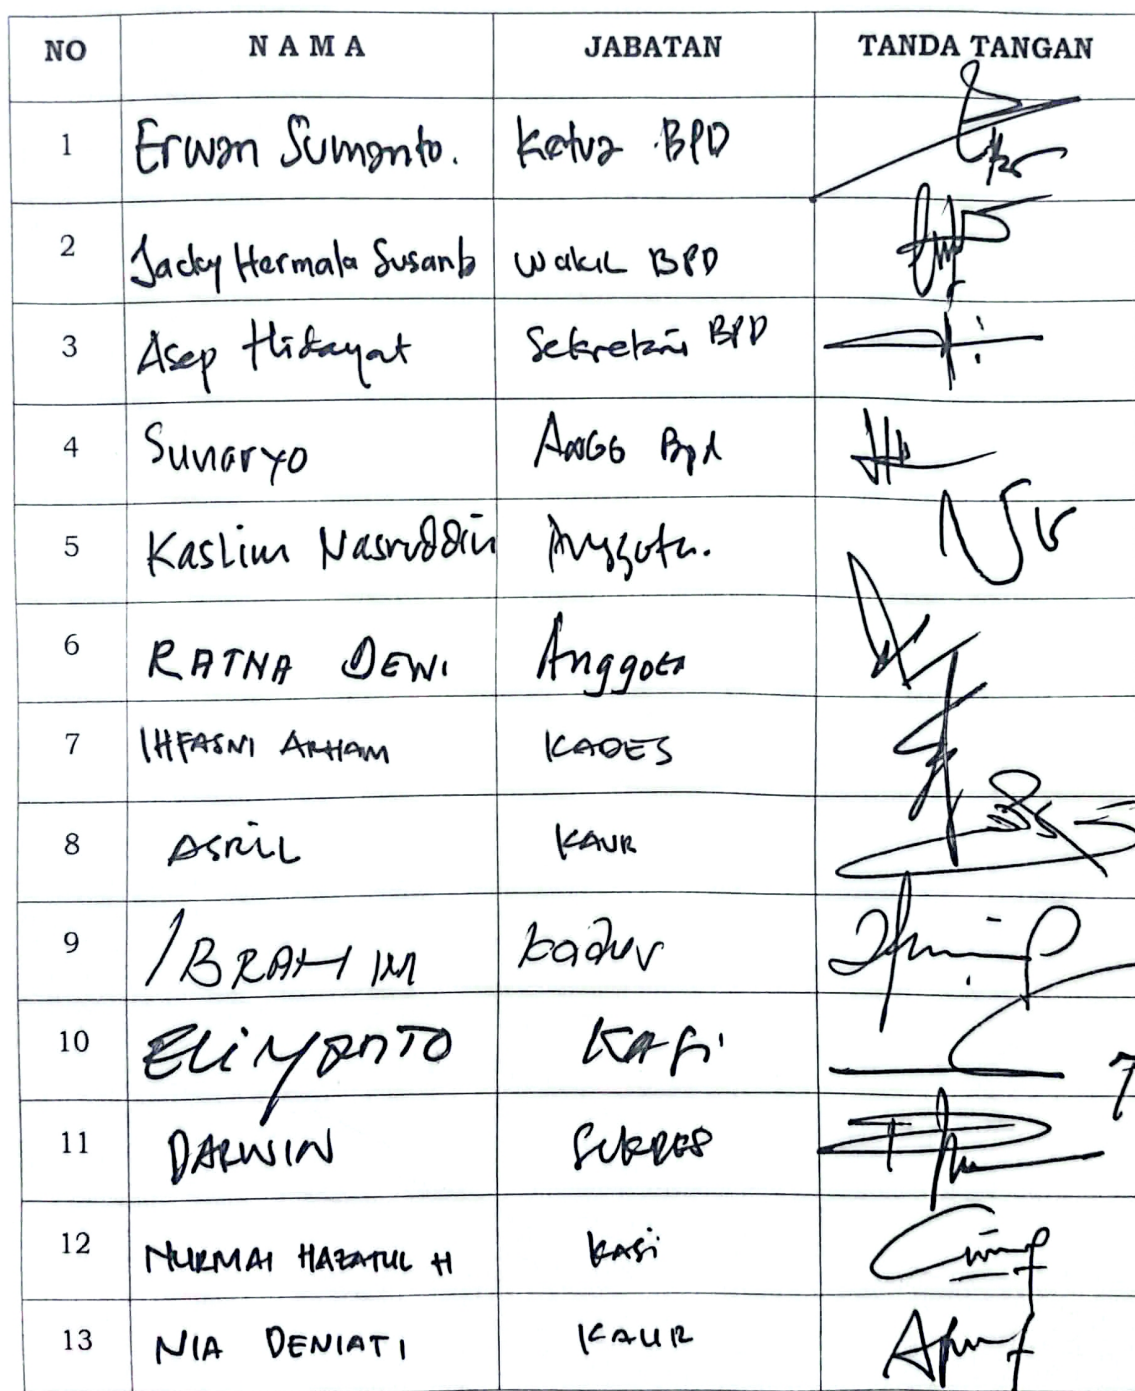 NO N A M A JABATAN TANDA TANGAN
1 Erwan Sumanto. Ketua BPD
2 Jacky Hermala Susanto Wakil BPD
3 Asep Hidayat Sekretaris BPD
4 Sunaryo Angg Bpd
5 Kaslim Nasruddin Anggota.
6 RATNA DEWI Anggota
7 IHFASNI ARHAM KADES
8 ASRIL KAUR
9 IBRAHIM Kadus
10 ELiYANTO KASi
11 DARWIN SEKDES
12 NURMAI HAZATUL H KASi
13 NIA DENIATI KAUR